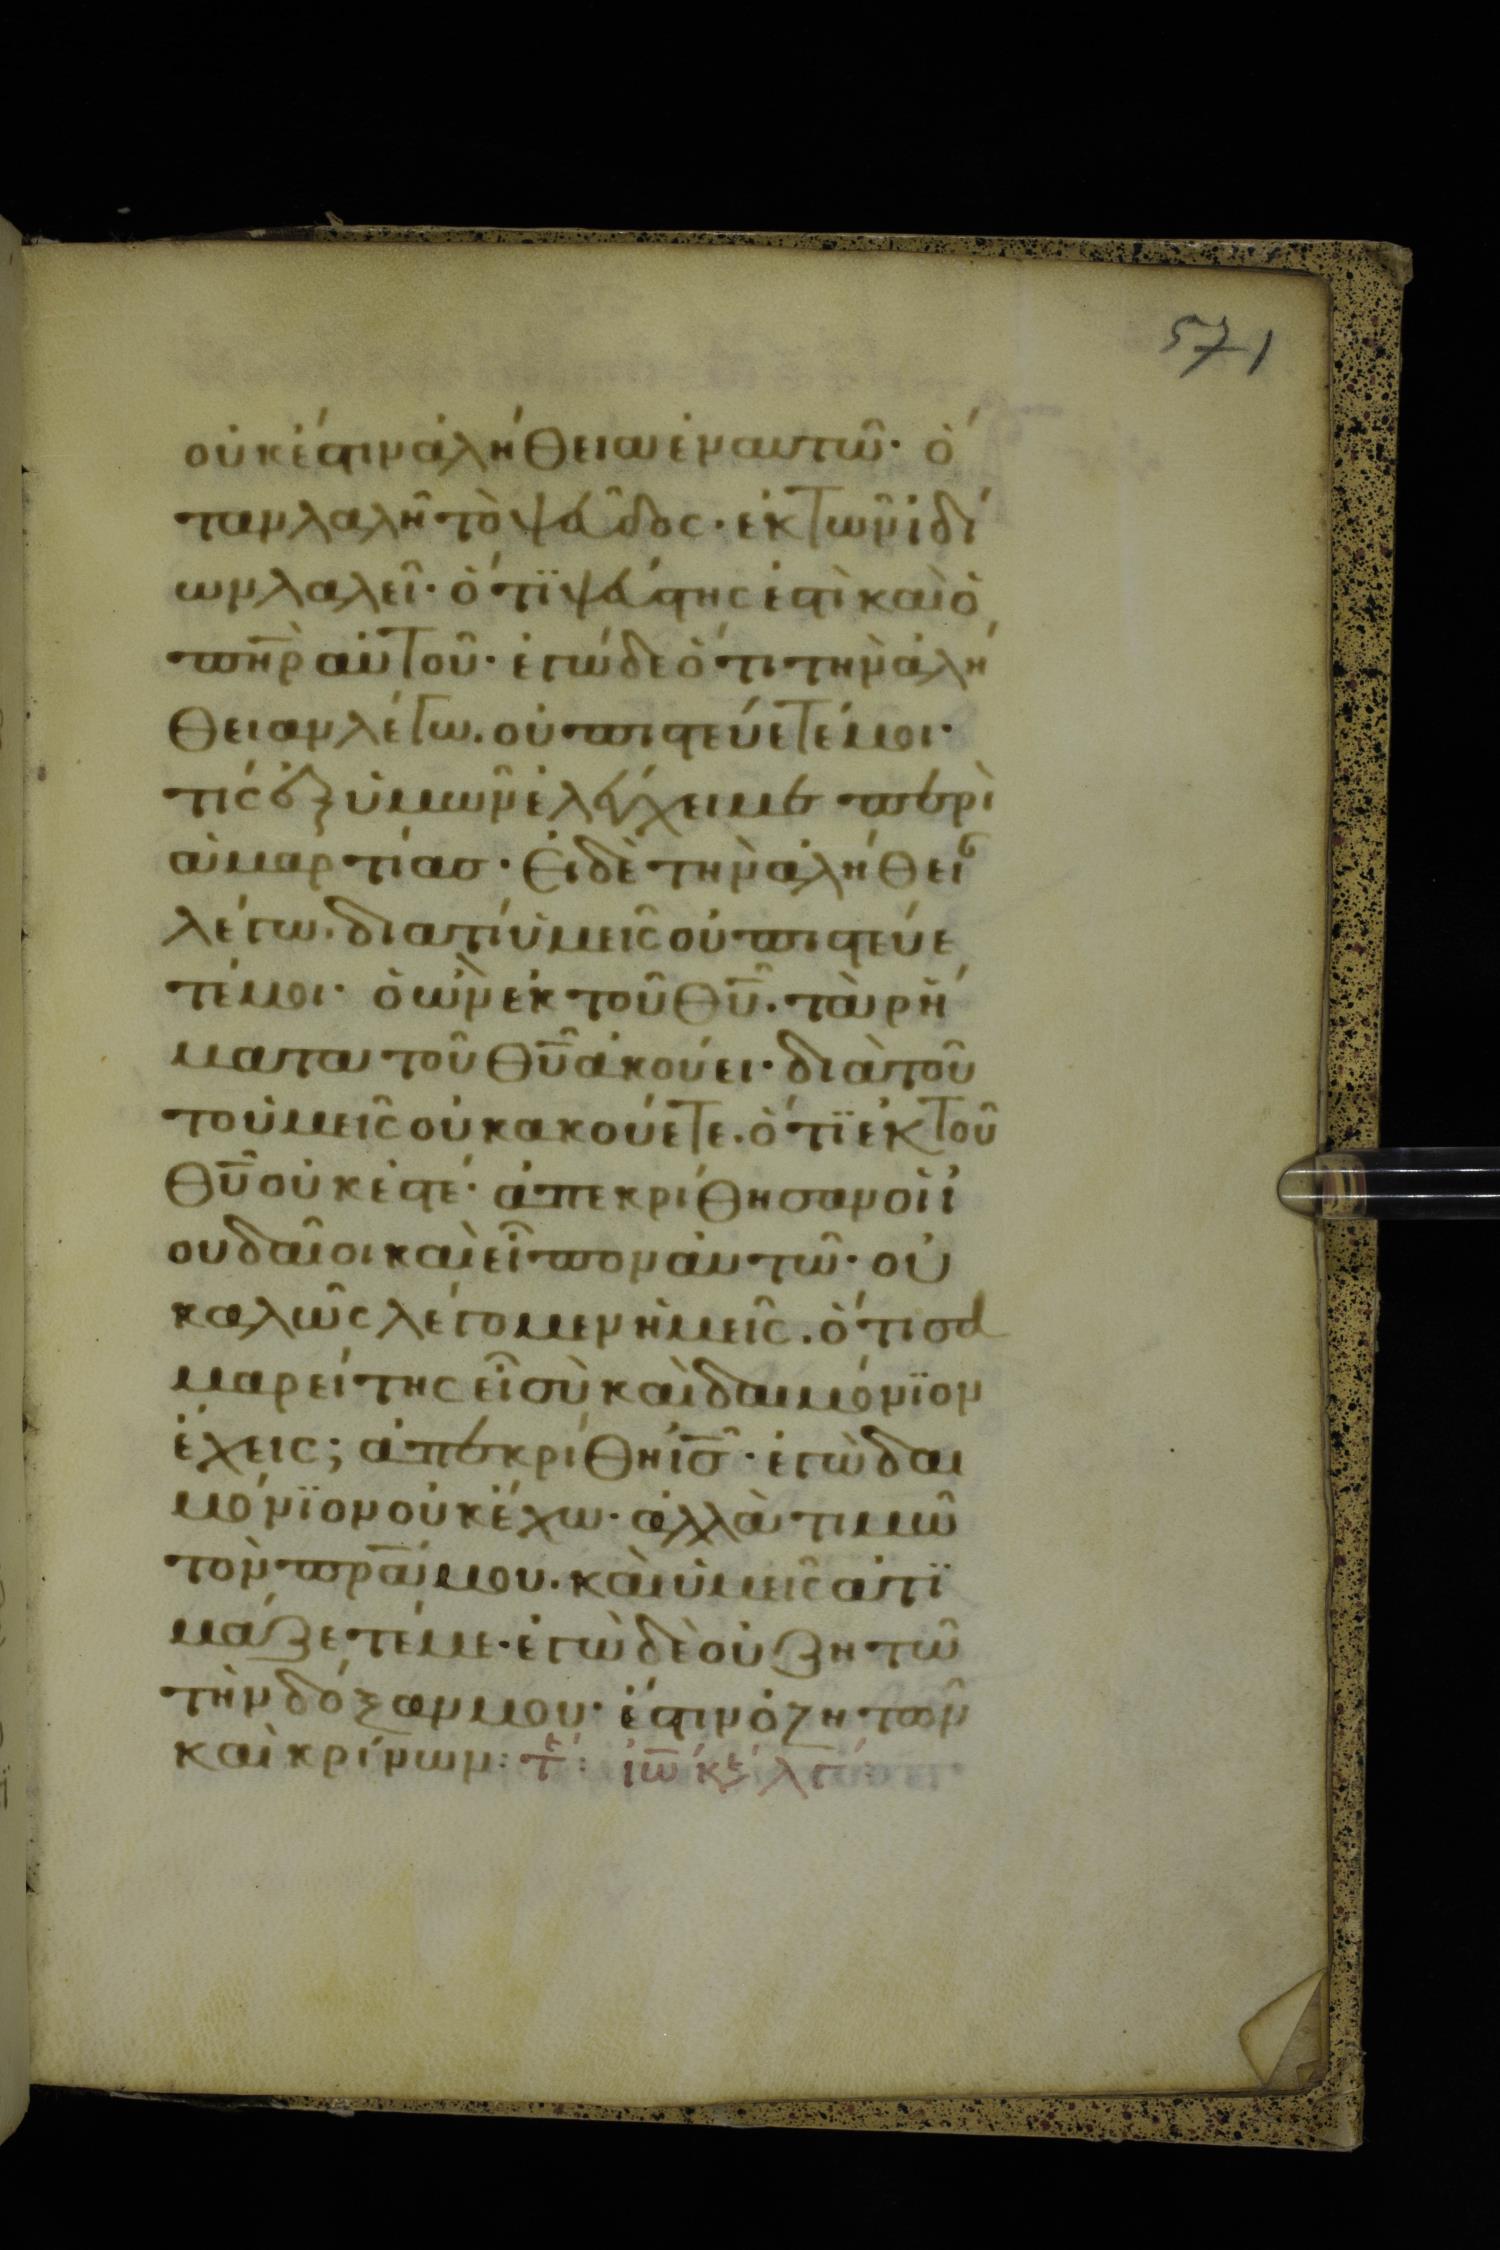 571
οὐκ ἔστιν ἀλήθεια ἐν αυτῶ· ὅ
ταν λαλῆ τὸ ψεῦδος· ἐκ τῶν ἰδί
ων λαλεῖ· ὅτϊ ψεύστης ἐστὶ καὶ ὁ
πηρ̅ αὐτοῦ· ἐγώ δε ὅτι τὴν ἀλή
θειαν λέγω. οὐ πιστεύετέ μοι·
τίς ἐξ ὑμῶν ἐλέγχει με περὶ
ἁμαρτίας· Εἰ δὲ τὴν ἀλήθει
λέγω. διατί ὑμεῖς οὐ πιστεύε
τέ μοι· ὁ ὢν ἐκ τοῦ θυ̅. τὰ ῥή
ματα τοῦ θυ̅ ἀκούει· διὰ τοῦ
το ὑμεῖς οὐκ ακούετε. ὅτϊ ἐκ τοῦ
θυ̅ οὐκ ἐστέ· ἀπεκρίθησαν οἱ ἰ
ουδαῖοι καὶ εἶπον ἀυτῶ· οὐ
καλῶς λέγομεν ἡμεῖς. ὅτι σα
μαρείτης εἶ σὺ καὶ δαιμόνϊον
ἔχεις; ἀπεκρίθη ἰσ̅· ἐγὼ δαι
μόνϊον οὐκ ἔχω· ἀλλὰ τιμῶ
τὸν πρα̅ μου. καὶ ὑμεῖς ἀτϊ
μάζετέ με· ἐγὼ δὲ οὐ ζητῶ
τὴν δόξαν μου· ἔστιν ὁ ζητῶν
καὶ κρίνων: